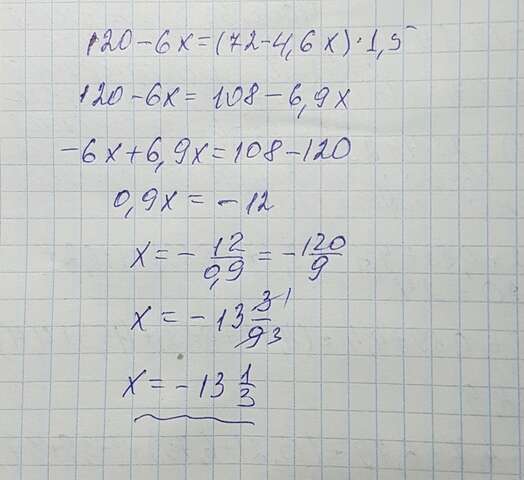 120-6x=(72-4,6x)·1,5
120-6x=108-6,9x
-6x+6,9x=108-120
0,9x=-12
x=-12/0,9=-120/9
x=-13 3/9 1 3
x=-13 1/3